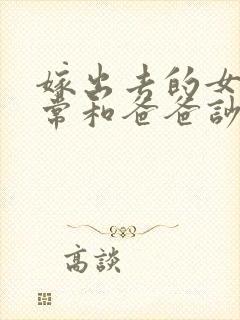 嫁出去的女
常和爸爸訪
高談